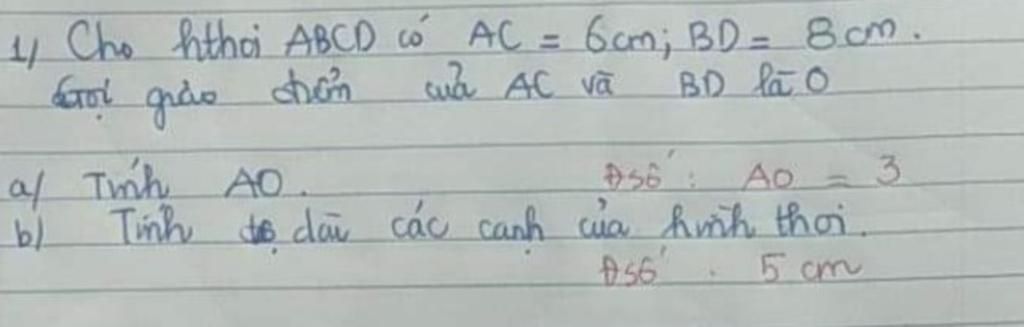 1/ Cho hthoi ABCD có AC = 6cm; BD = 8cm.
Gọi giao điểm của AC và BD là O
a/ Tính AO. Đsố: AO = 3
b) Tính độ dài các cạnh của hình thoi.
Đsố: 5 cm